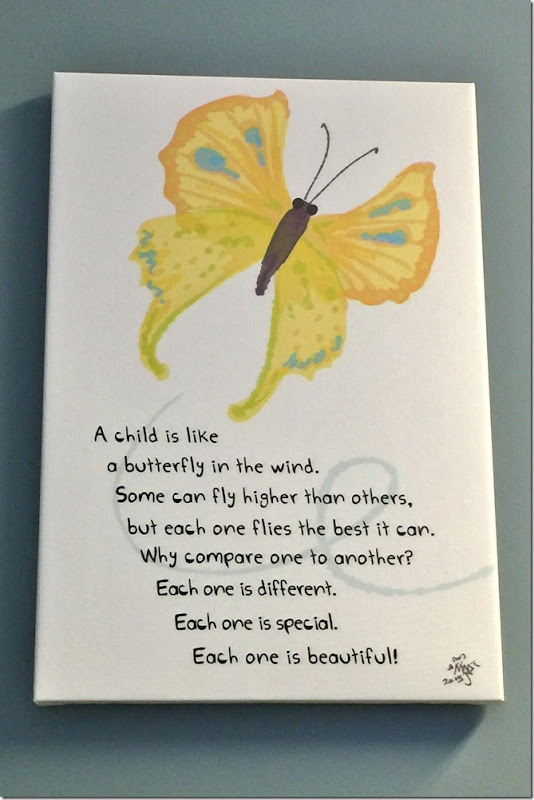 A child is like
a butterfly in the wind.
Some can fly higher than others,
but each one flies the best it can.
Why compare one to another?
Each one is different.
Each one is special.
Each one is beautiful!
2015